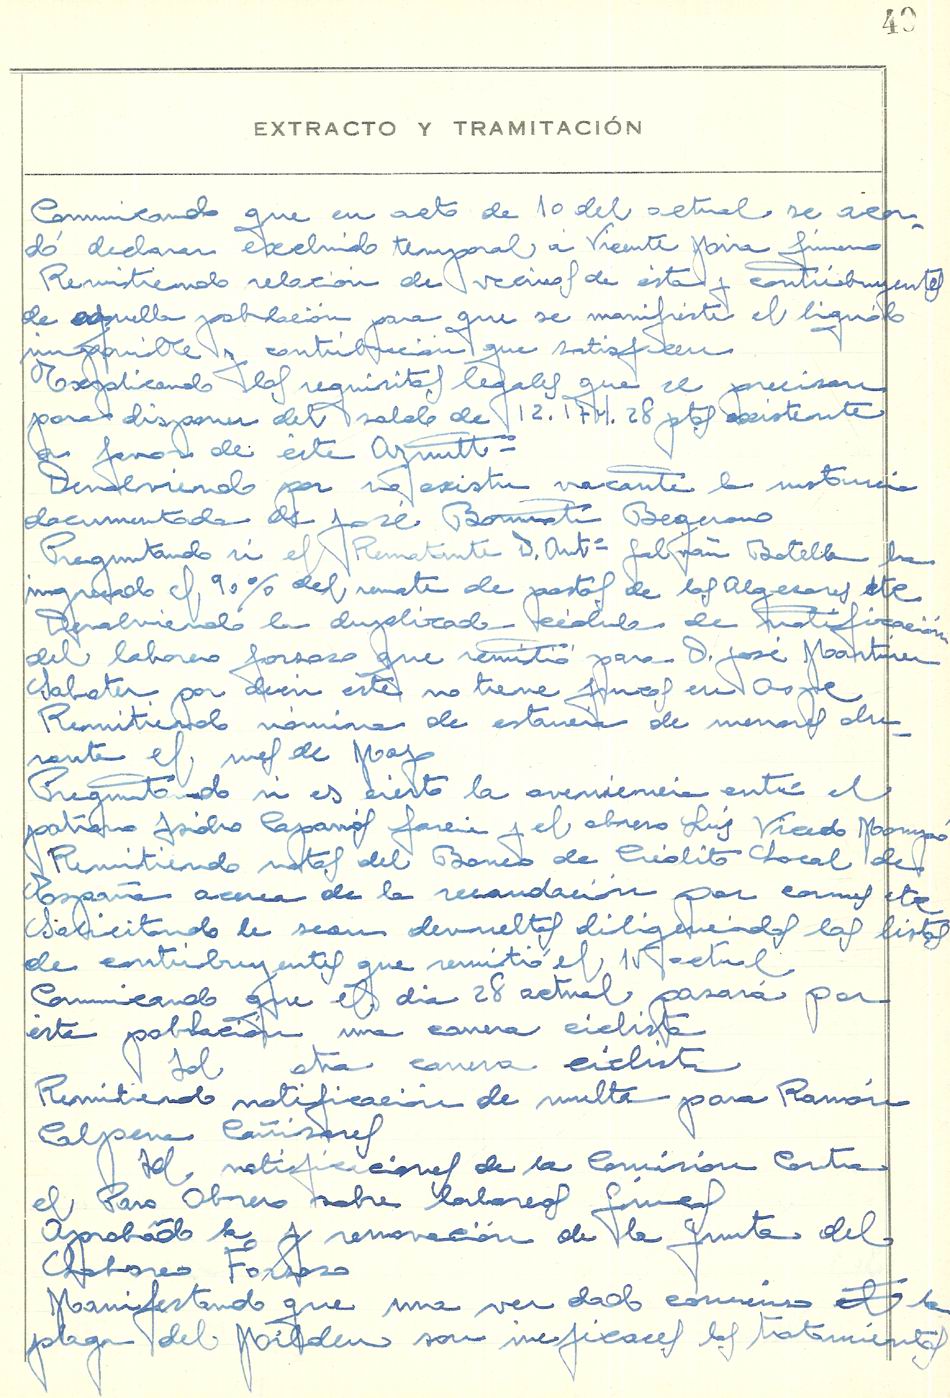 40
EXTRACTO Y TRAMITACIÓN
Comunicando que en acto de 10 del actual se acor-
dó declarar excluido temporal a Vicente Mira Jimeno
Remitiendo relación de vecinos de ésta y contribuyentes
de aquella población para que se manifieste el líquido
imponible y contribución que satisfacen
Explicando los requisitos legales que se precisan
para disponer del saldo de 12.174.28 ptas existente
a favor de éste Ayuntt=
Devolviendo por no existir vacante la instancia
documentada de José Begerano
Preguntando si el Rematante D. Antº Galvañ Botella ha
ingresado el 90% del remate de pastos de los Algezares etc
Devolviendo la duplicada cédula de notificación
del laboreo forzoso que remitió para D. José Martinez
Sabater por decir éste no tiene fincas en Aspe
Remitiendo nómina de estancia de menores du-
rante el mes de Mayo
Preguntando si es cierta la avenencia entre el
patrono Isidro Caparrós García y el obrero Luis Vicedo
Remitiendo notas del Banco de Crédito Local de
España acerca de la recaudación por carnes etc
Solicitando le sean devueltas diligenciadas las listas
de contribuyentes que remitió el 15 actual
Comunicando que el dia 28 actual pasará por
ésta población una carrera ciclista
Id otra carrera ciclista
Remitiendo notificación de multa para Ramón
Calpena Cañizares
Id. notificaciones de la Comisión Contra
el Paro Obrero sobre laboreos fincas
Aprobado la renovación de la Junta del
Laboreo Forzoso
Manifestando que una vez dado comienzo la
plaga del Mildeu son ineficaces los tratamientos